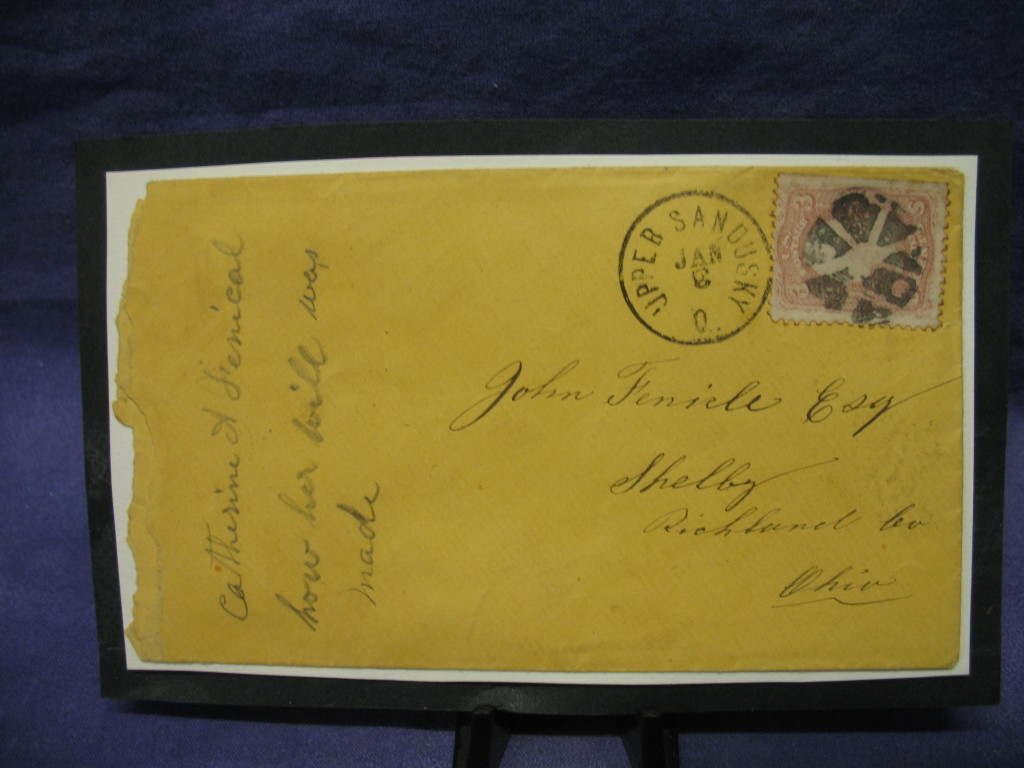 UPPER SANDUSKY
JAN
6
O.
John Fenicle Esq
Shelby
Richland Co
Ohio
Catherine A Fenical
how her will was
made